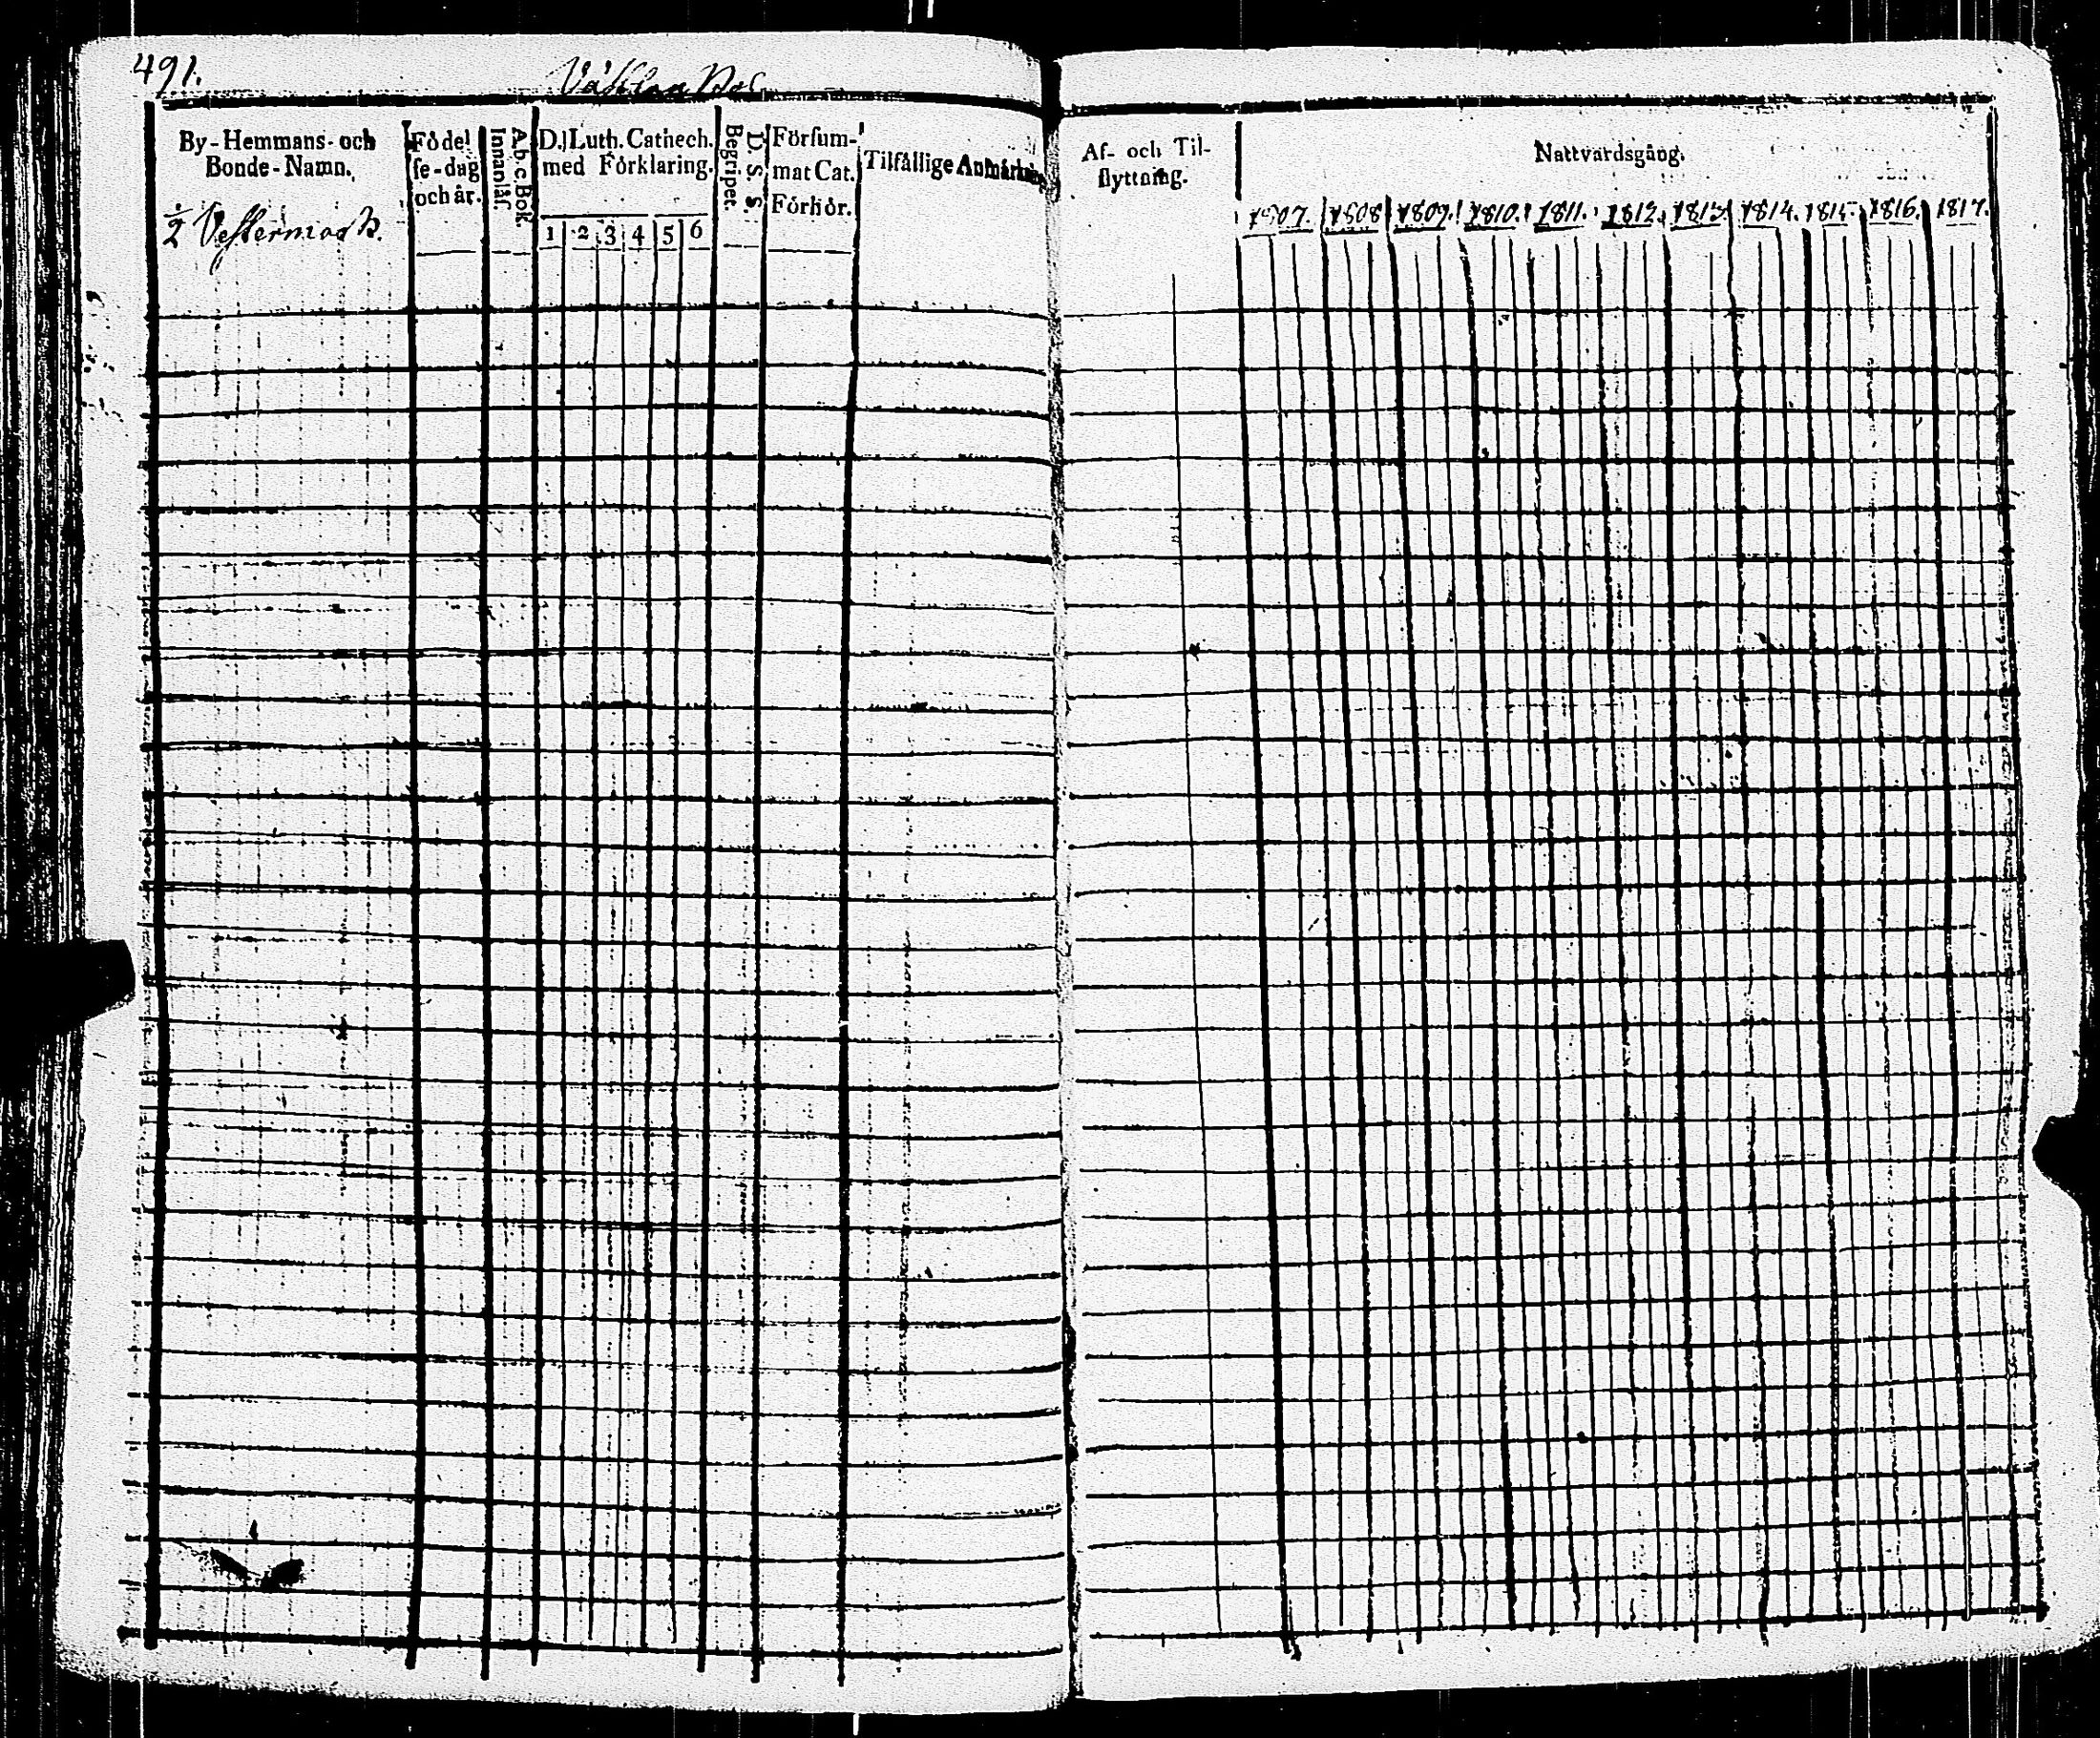 491.
By-Hemmans- och
Bonde-Namn.
½ Vestermark.
Födel
se-dag
och år.
A b c Bok
Innanläs.
D. Luth. Cathech.
med Förklaring.
1 2 3 4 5 6
D. S. S.
Begripet.
Försum-
mat Cat.
Förhör.
Tilfällige Anmärkn
Af- och Til-
flyttning.
Nattvardsgång.
1807. 1808 1809. 1810. 1811. 1812. 1813. 1814. 1815. 1816. 1817.